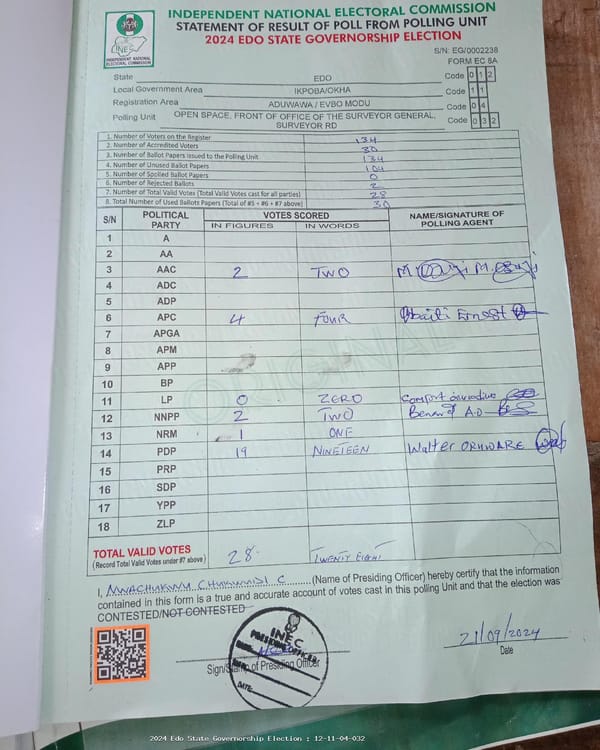 INDEPENDENT NATIONAL ELECTORAL COMMISSION
STATEMENT OF RESULT OF POLL FROM POLLING UNIT
2024 EDO STATE GOVERNORSHIP ELECTION
INEC
INDEPENDENT NATIONAL ELECTORAL COMMISSION
S/N: EG/0002238
FORM EC 8A
State EDO Code 0 1 2
Local Government Area IKPOBA/OKHA Code 1 1
Registration Area ADUWAWA / EVBO MODU Code 0 4
Polling Unit OPEN SPACE, FRONT OF OFFICE OF THE SURVEYOR GENERAL, SURVEYOR RD Code 0 3 2
1. Number of Voters on the Register 134
2. Number of Accredited Voters 30
3. Number of Ballot Papers Issued to the Polling Unit 134
4. Number of Unused Ballot Papers 104
5. Number of Spoiled Ballot Papers 0
6. Number of Rejected Ballots 2
7. Number of Total Valid Votes (Total Valid Votes cast for all parties) 28
8. Total Number of Used Ballots Papers (Total of #5 + #6 + #7 above) 30
S/N POLITICAL PARTY VOTES SCORED NAME/SIGNATURE OF POLLING AGENT
IN FIGURES IN WORDS
1 A
2 AA
3 AAC 2 TWO
4 ADC
5 ADP
6 APC 4 FOUR Ernest
7 APGA
8 APM
9 APP
10 BP
11 LP 0 ZERO Comfort
12 NNPP 2 TWO Benard A.D
13 NRM 1 ONE
14 PDP 19 NINETEEN Walter
15 PRP
16 SDP
17 YPP
18 ZLP
ORIGINAL
TOTAL VALID VOTES 28 TWENTY EIGHT
(Record Total Valid Votes under #7 above)
I, NWACHUKWU C (Name of Presiding Officer) hereby certify that the information
contained in this form is a true and accurate account of votes cast in this polling Unit and that the election was
CONTESTED/NOT CONTESTED
INEC
PRESIDING OFFICER
DATE:
21/09/2024
Sign/Stamp of Presiding Officer
Date
2024 Edo State Governorship Election : 12-11-04-032